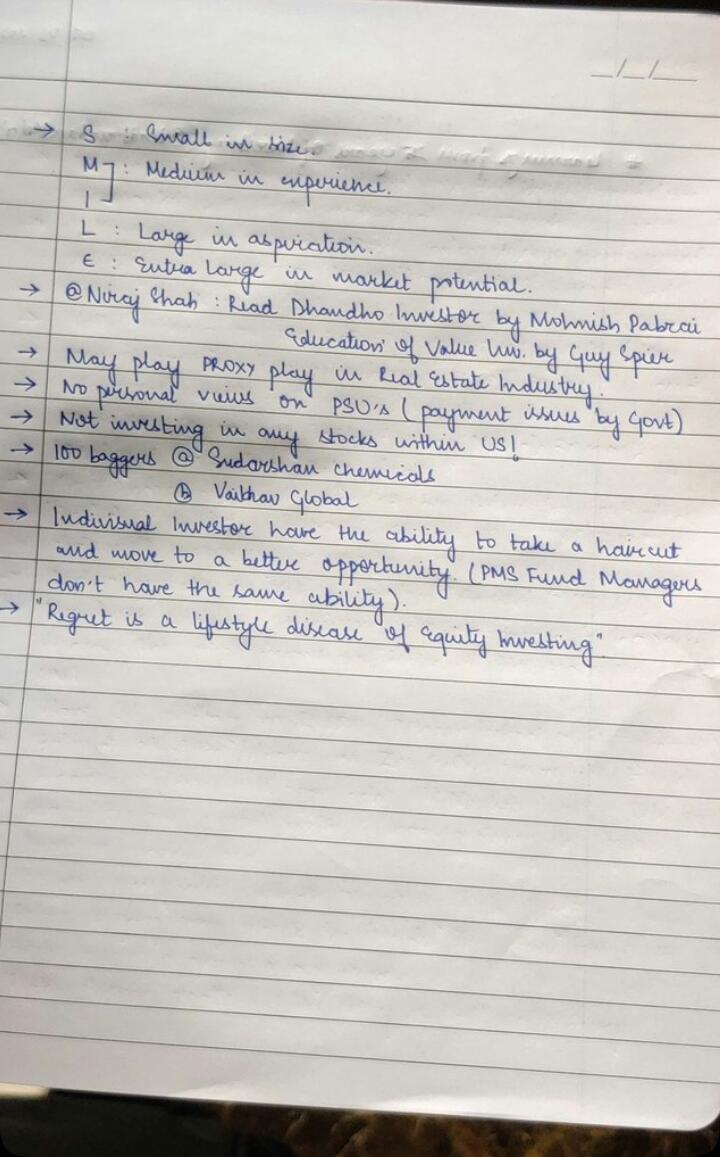 _/_/__
→ S : Small in size.
M ] : Medium in experience.
I
L : Large in aspiration.
E : Extra Large in market potential.
→ @Niraj Shah : Read Dhandho Investor by Mohnish Pabrai
Education of Value Inv. by Guy Spier
→ May play PROXY play in Real Estate Industry.
→ No personal views on PSU's (payment issues by Govt)
→ Not investing in any stocks within US!
→ 100 baggers ⓐ Sudarshan Chemicals
ⓑ Vaibhav Global
→ Indivisual Investor have the ability to take a haircut
and move to a better opportunity. (PMS Fund Managers
don't have the same ability).
→ "Regret is a lifestyle disease of Equity Investing"